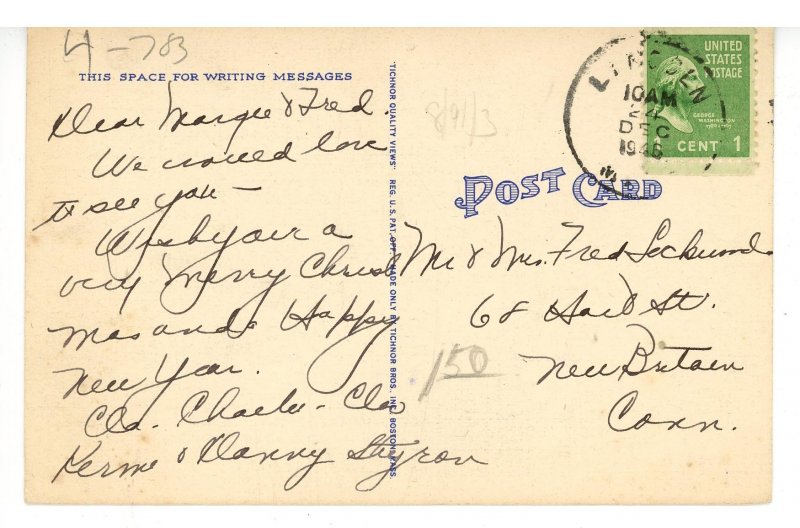 4-783
THIS SPACE FOR WRITING MESSAGES
Dear Margie & Fred.
We would love
to see you –
Wish you a
very Merry Christ
mas and a Happy
New Year.
Charlie -
& Danny Styron
"TICHNOR QUALITY VIEWS" REG. U. S. PAT. OFF. MADE ONLY BY TICHNOR BROS., INC., BOSTON, MASS.
8/91/3
LINCOLN
10AM
24
DEC
1946
UNITED
STATES
POSTAGE
GEORGE
WASHINGTON
1789-1797
CENT 1
POST CARD
Mr & Mrs. Fred Lockwood
68 Hart St.
New Britain
Conn.
150